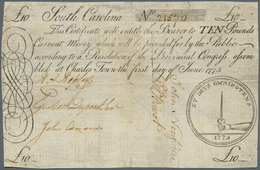 £10 South Carolina No. 21570 £10
This Certificate will entitle the Bearer to TEN Pounds
Current Money which will be provided for by the Public
according to a Resolution of the Provincial Congress assem-
bled at Charles Town the first day of June 1775
John Edwards
ET DEUS OMNIPOTENS
1775
£10 £10